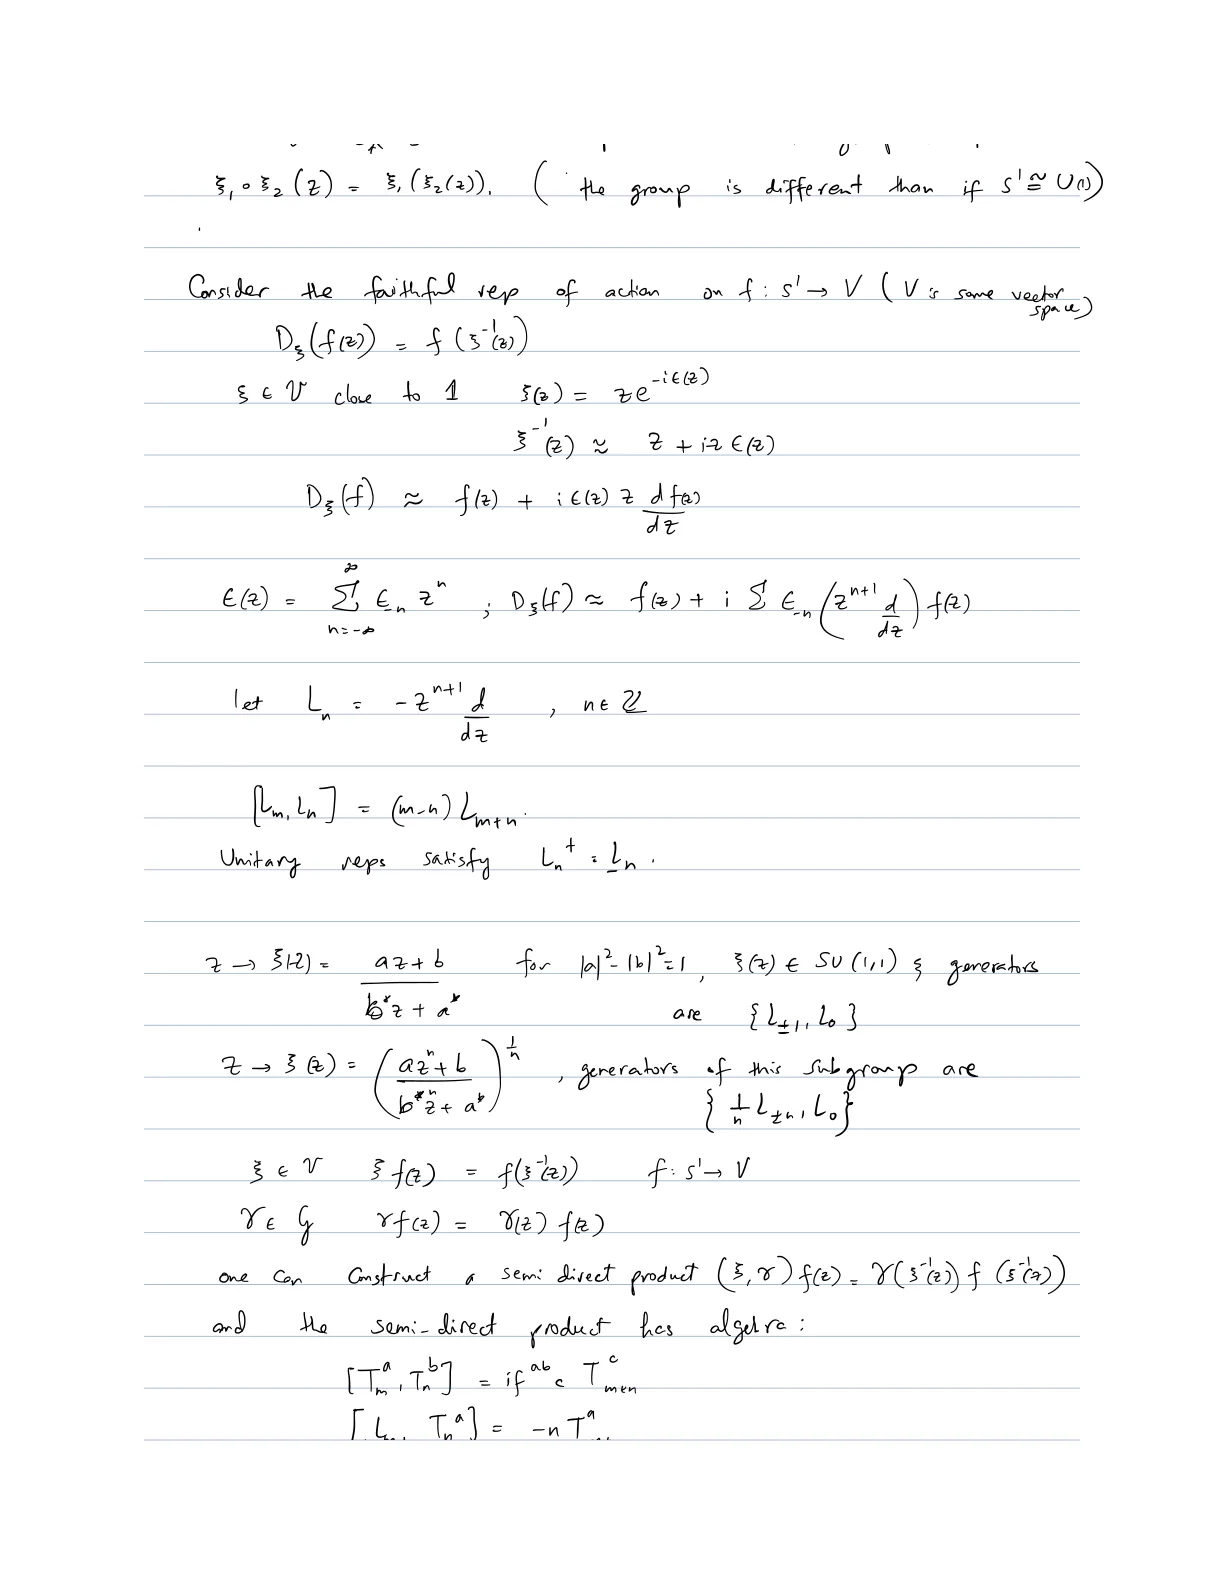 ξ₁ ∘ ξ₂ (z) = ξ₁ (ξ₂(z)). ( the group is different than if S¹ ≅ U(1))
Consider the faithful rep of action on f : S¹ → V ( V is some vector space)
D_ξ (f(z)) = f (ξ⁻¹(z))
ξ ∈ V close to 1 ξ(z) = z e^{-iε(z)}
ξ⁻¹(z) ≈ z + iz ε(z)
D_ξ (f) ≈ f(z) + i ε(z) z \frac{d f(z)}{dz}
ε(z) = \sum_{n=-∞}^{∞} ε_{-n} z^n ; D_ξ(f) ≈ f(z) + i Σ ε_{-n} (z^{n+1} \frac{d}{dz}) f(z)
let L_n = - z^{n+1} \frac{d}{dz} , n ∈ ℤ
[L_m, L_n] = (m-n) L_{m+n}.
Unitary reps satisfy L_n^† = L_{-n}.
z → ξ(z) = \frac{az + b}{b^* z + a^*} for |a|² - |b|² = 1, ξ(z) ∈ SU(1,1) & generators
are {L_{±1}, L_0}
z → ξ(z) = (\frac{az^n + b}{b^* z^n + a^*})^{\frac{1}{n}} , generators of this subgroup are
{\frac{1}{n} L_{±n}, L_0}
ξ ∈ V ξ f(z) = f(ξ⁻¹(z)) f : S¹ → V
γ ∈ G γ f(z) = γ(z) f(z)
one can construct a semi direct product (ξ, γ) f(z) = γ(ξ⁻¹(z)) f (ξ⁻¹(z))
and the semi-direct product has algebra :
[T_m^a, T_n^b] = i f^{ab}_c T^c_{m+n}
[L_m, T_n^a] = -n T^a